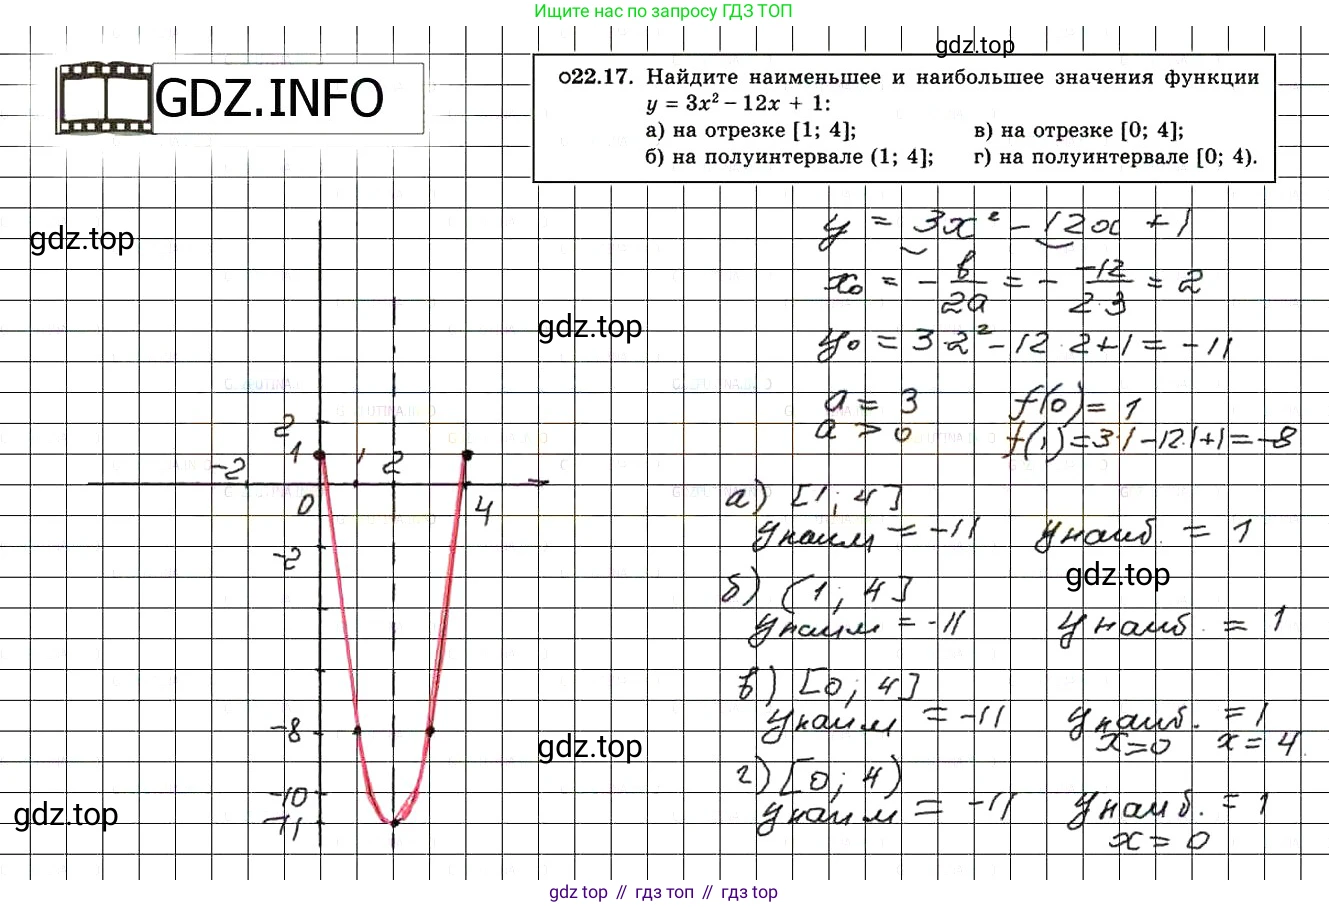 Ищите нас по запросу ГДЗ ТОП
gdz.top
GDZ.INFO
○22.17. Найдите наименьшее и наибольшее значения функции
y = 3x² – 12x + 1:
а) на отрезке [1; 4];
в) на отрезке [0; 4];
б) на полуинтервале (1; 4];
г) на полуинтервале [0; 4).
gdz.top
y = 3x² – 12x + 1
x₀ = – в/2a = – –12/2·3 = 2
gdz.top
y₀ = 3·2² – 12·2+1 = –11
a = 3
f(0) = 1
a > 0
f(1) = 3·1 –12·1+1 = –8
2
1
1
2
–2
0
4
–2
–8
–10
–11
а) [1; 4]
yнаим = –11
yнаиб. = 1
gdz.top
б) (1; 4]
yнаим = –11
yнаиб. = 1
в) [0; 4]
yнаим = –11
yнаиб. = 1
x=0
x=4
gdz.top
г) [0; 4)
yнаим = –11
yнаиб. = 1
x = 0
gdz.top
gdz top // гдз топ // gdz top